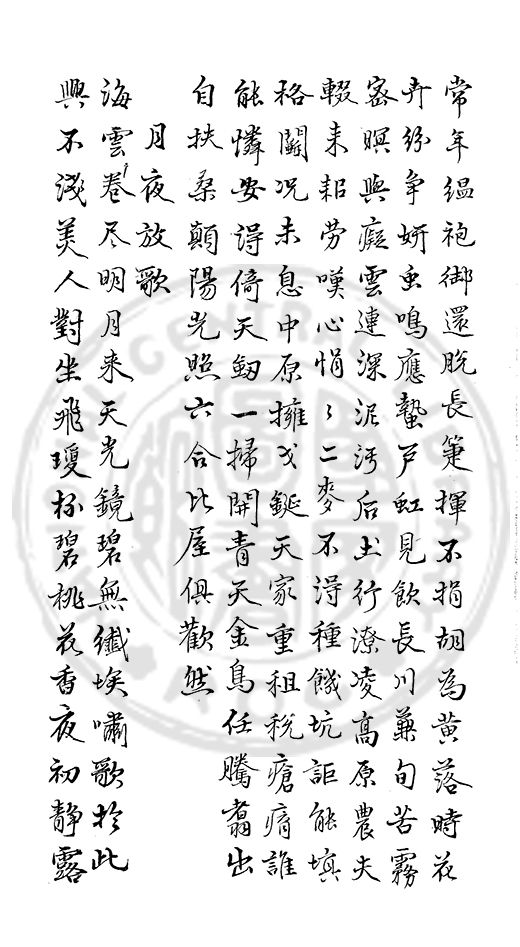 常年縕袍御還脫長箑揮不捐胡為黃落時花
卉紛爭妍虫鳴應蟄戶虹見飲長川兼旬苦霧
密暝與癡雲連深泥汚后土行潦凌高原農夫
輟耒耜勞嘆心悁〻二麥不淂種饑坑詎能填
格鬬況未息中原擁戈鋋天家重租稅瘡痏誰
能憐安淂倚天劒一掃開青天金烏任騰翥出
自扶桑顛陽光照六合比屋俱歡然
月夜放歌
海雲卷尽明月来天光鏡碧無纖埃嘯歌於此
興不淺美人對坐飛瓊杯碧桃花香夜初靜露